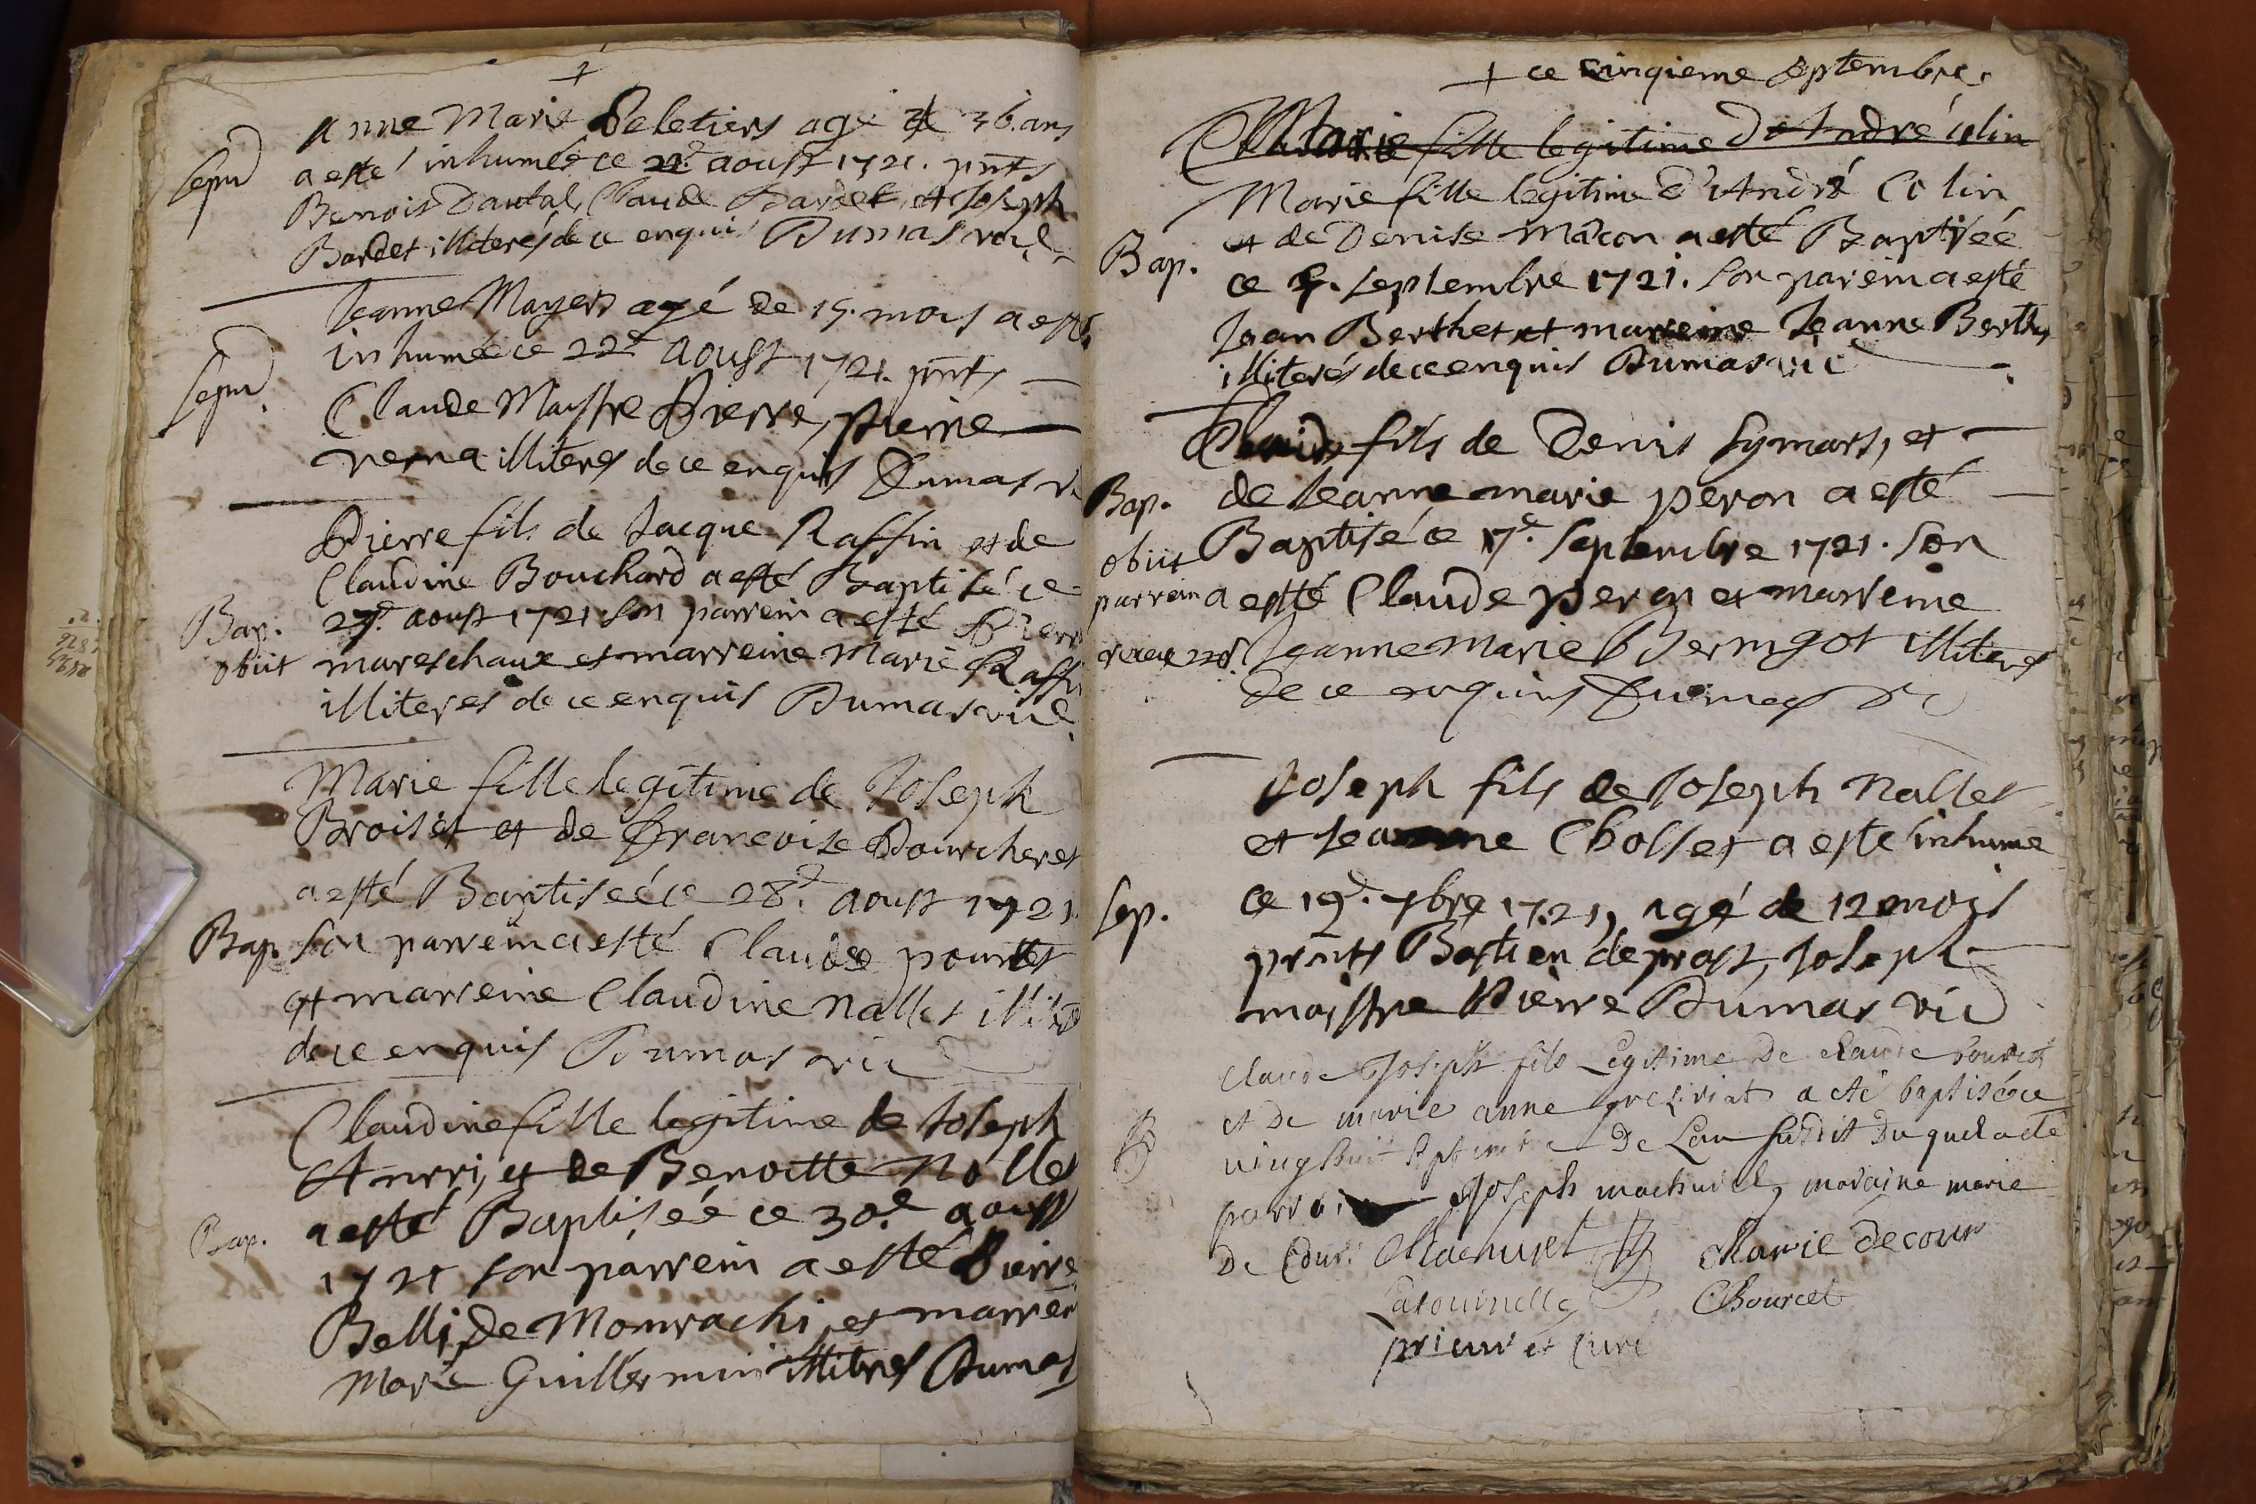 +
Anne Marie Peletiers agé de 36. ans
Sepu
a esté inhumée ce 22e aoust 1721. pnts
Benois Dautal, Claude Bardet, et Joseph
Bardet illiterés de ce enquis Dumas vic
Jeanne Mayers agé de 15. mois a esté
Sepu
inhumée ce 22e aoust 1721. pnts
Claude Maistre Pierre, pierre
verna illiteres de ce enquis Dumas vi
Pierre fils de Jacque Raffin et de
Claudine Bouchard a esté Baptisé ce
Bap.
27e aoust 1721 son parrein a esté Pierre
obiit
mareschaux et marreine Marie Raffi
illiteres de ce enquis Dumas vic
Marie fille legitime de Joseph
Broiset et de Francoise Pourcheret
a esté Baptiseé ce 28e. aoust 1721.
Bap.
son parrein a esté Claude pourret
et marreine Claudine nallet
de ce enquis Dumas vic
Claudine fille legitime de Joseph
Anrri, et de Benoitte Nolle
Bap.
a esté Baptiseé ce 30e. aoust
1721 son parrein a esté Pierre
Belli, de Monrrachi, et marrein
Marie Guillermin illitres Dumas
+ ce cinqieme septembre
Marie fille legitime De André Colin
Marie fille legitime d'André Colin
Bap.
et de Denise Mâcon a esté Baptiseé
ce 5. septembre 1721. son parein a esté
Jean Berthet et marreine Jeanne Berth
illiterés de ce enquis Dumas vic
Claude fils de Denis Symars, et
Bap.
de Jeanne marie peron a esté
obiit
Baptisé ce 17e. septembre 1721. son
parrein a esté Claude peron et marreine
Jeanne Marie illiteres
de ce enquis Dumas vic
Joseph fils de Joseph Nallet
et Jeanne Chosset a esté inhumé
Sep.
ce 19e. 7bre 1721, agé de 12 mois
pnts Bastien deprast, Joseph
maistre Pierre Dumas vic
Claude Joseph fils Legitime De claude
et De marie anne a eté baptisé ce
B
vingt huit Septembre De Lan susdit Duquel a eté
parrain Joseph machurel, maraine marie
De Cour. Machurel Marie decour
Latouinelle CBourcet
prieur et curé